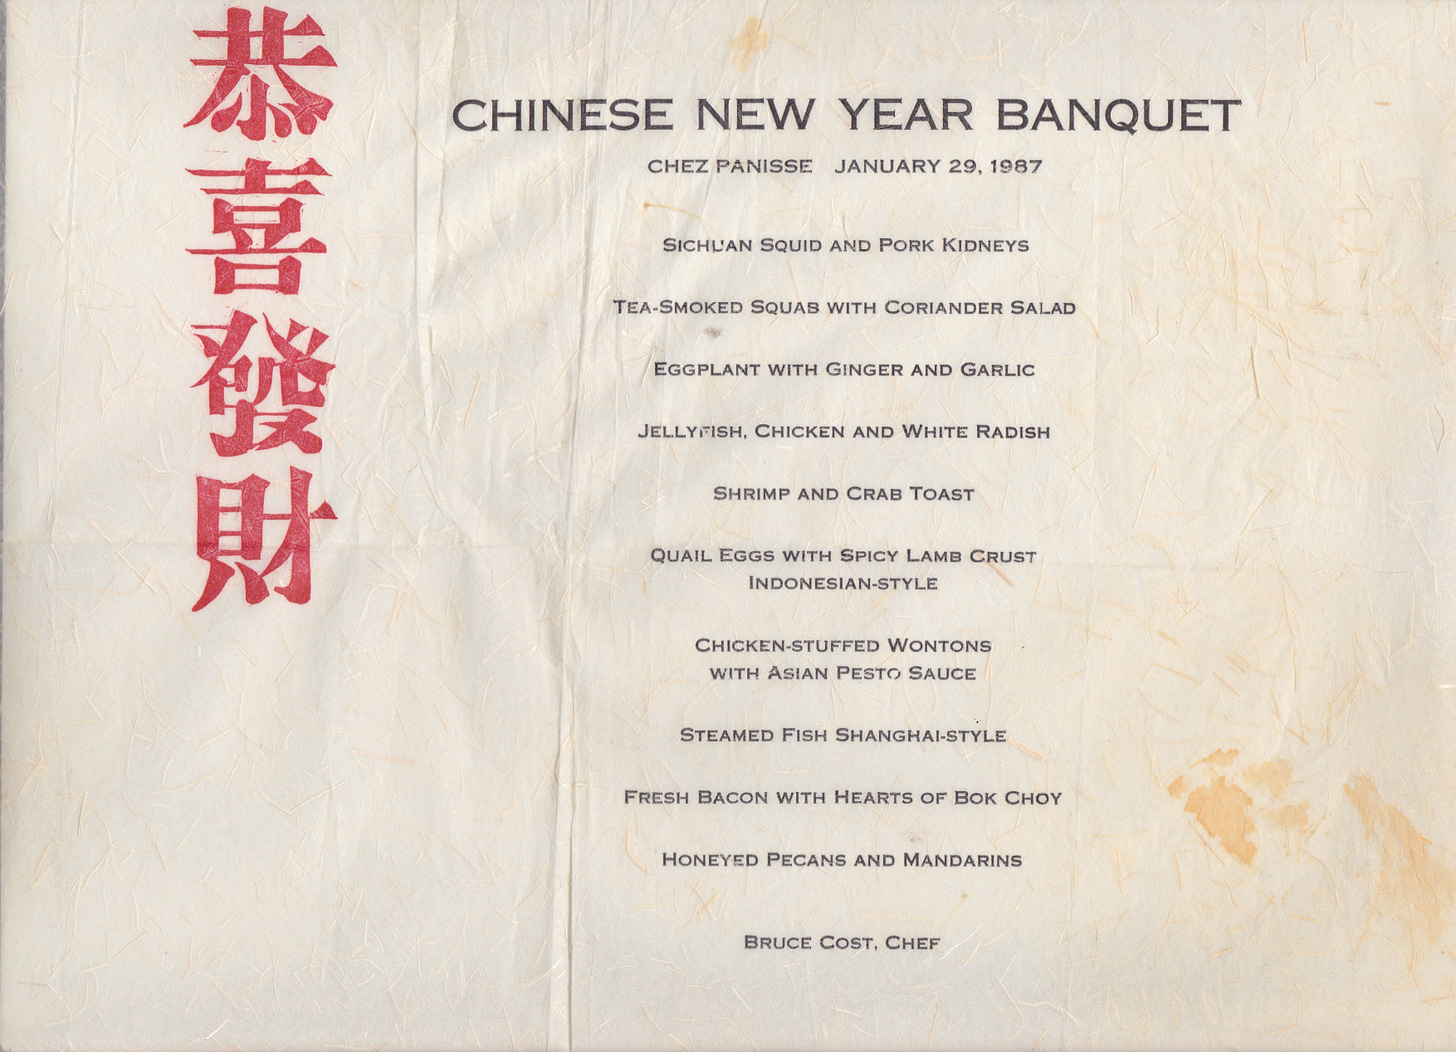 恭喜發財
CHINESE NEW YEAR BANQUET
CHEZ PANISSE JANUARY 29, 1987
SICHUAN SQUID AND PORK KIDNEYS
TEA-SMOKED SQUAB WITH CORIANDER SALAD
EGGPLANT WITH GINGER AND GARLIC
JELLYFISH, CHICKEN AND WHITE RADISH
SHRIMP AND CRAB TOAST
QUAIL EGGS WITH SPICY LAMB CRUST
INDONESIAN-STYLE
CHICKEN-STUFFED WONTONS
WITH ASIAN PESTO SAUCE
STEAMED FISH SHANGHAI-STYLE
FRESH BACON WITH HEARTS OF BOK CHOY
HONEYED PECANS AND MANDARINS
BRUCE COST, CHEF